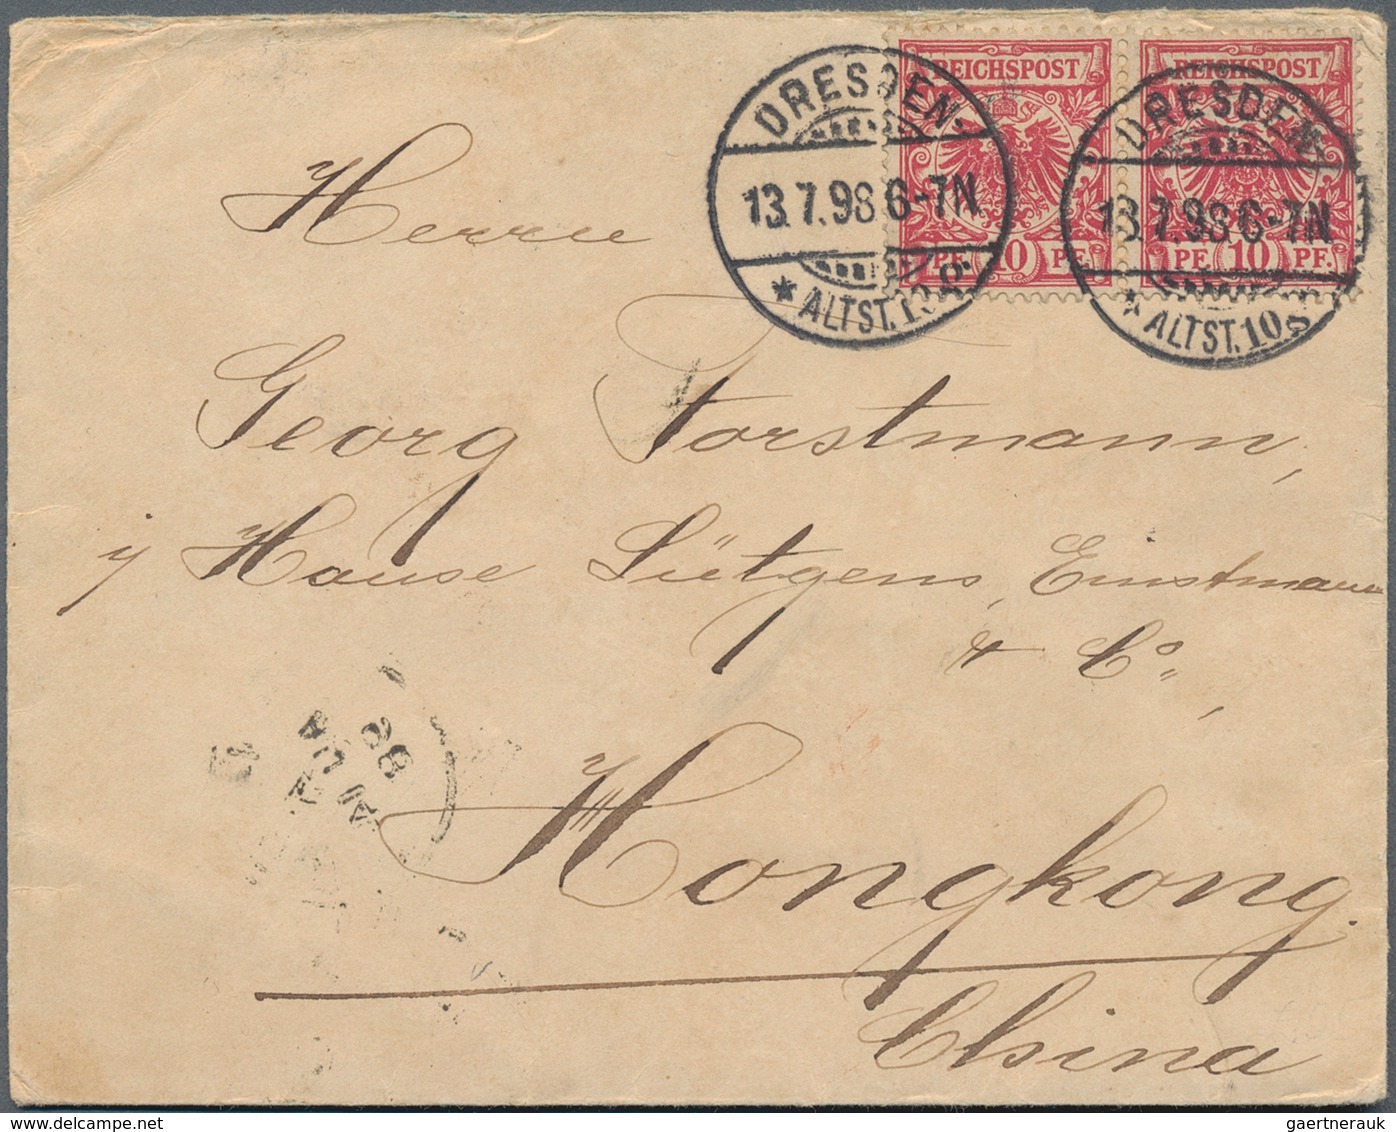 REICHSPOST REICHSPOST
PF. 10 PF. PF. 10 PF.
DRESDEN.
13.7.98.6-7N.
* ALTST.10.
DRESDEN.
13.7.98.6-7N
* ALTST.10.
Herrn
Georg Forstmann,
Hause Lütgens, Einstmann
& Co,
Hongkong.
China
28
gaertnerauk@delcampe.net